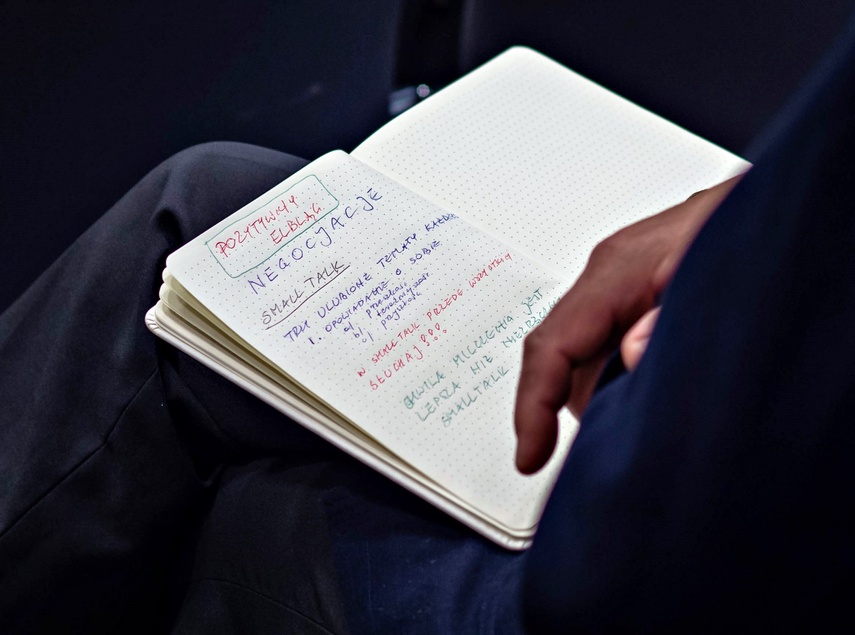 POZYTYWNY
ELBLĄG
NEGOCJACJE
SMALL TALK
TRZY ULUBIONE TEMATY KAŻDEGO
1. OPOWIADANIE O SOBIE
a) przeszłość
b) teraźniejszość
c) przyszłość
W SMALL TALK PRZEDE WSZYSTKIM
SŁUCHAJ!!!
CHWILA MILCZENIA JEST
LEPSZA NIŻ
SMALL TALK